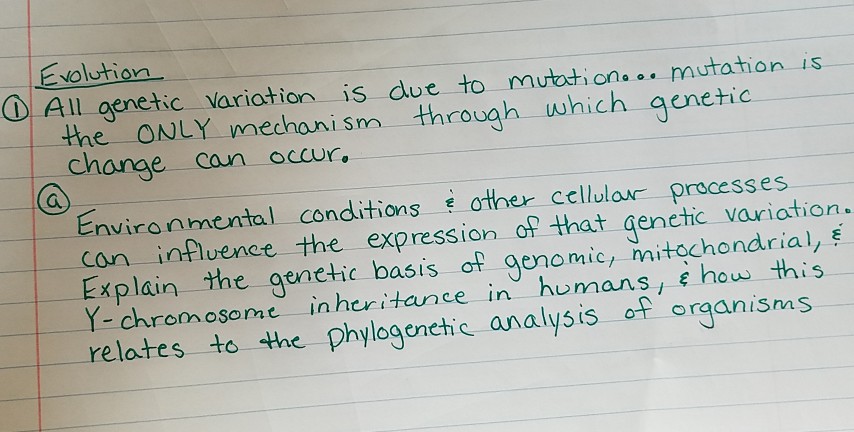 Evolution
① All genetic variation is due to mutation... mutation is
the ONLY mechanism through which genetic
change can occur.
ⓐ
Environmental conditions & other cellular processes
can influence the expression of that genetic variation.
Explain the genetic basis of genomic, mitochondrial, &
Y-chromosome inheritance in humans, & how this
relates to the phylogenetic analysis of organisms